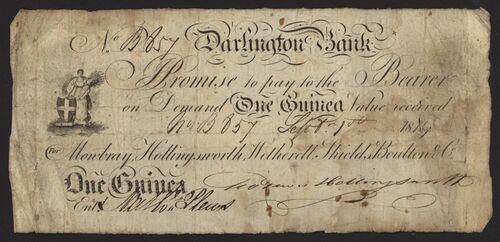 No. B857 Darlington Bank
I Promise to pay to the Bearer
on Demand One Guinea Value received
No B857 Sept 1st 18
For Mowbray, Hollingsworth, Wetherell, Shield, Boulton & Co.
One Guinea Hollingsworth
Entd